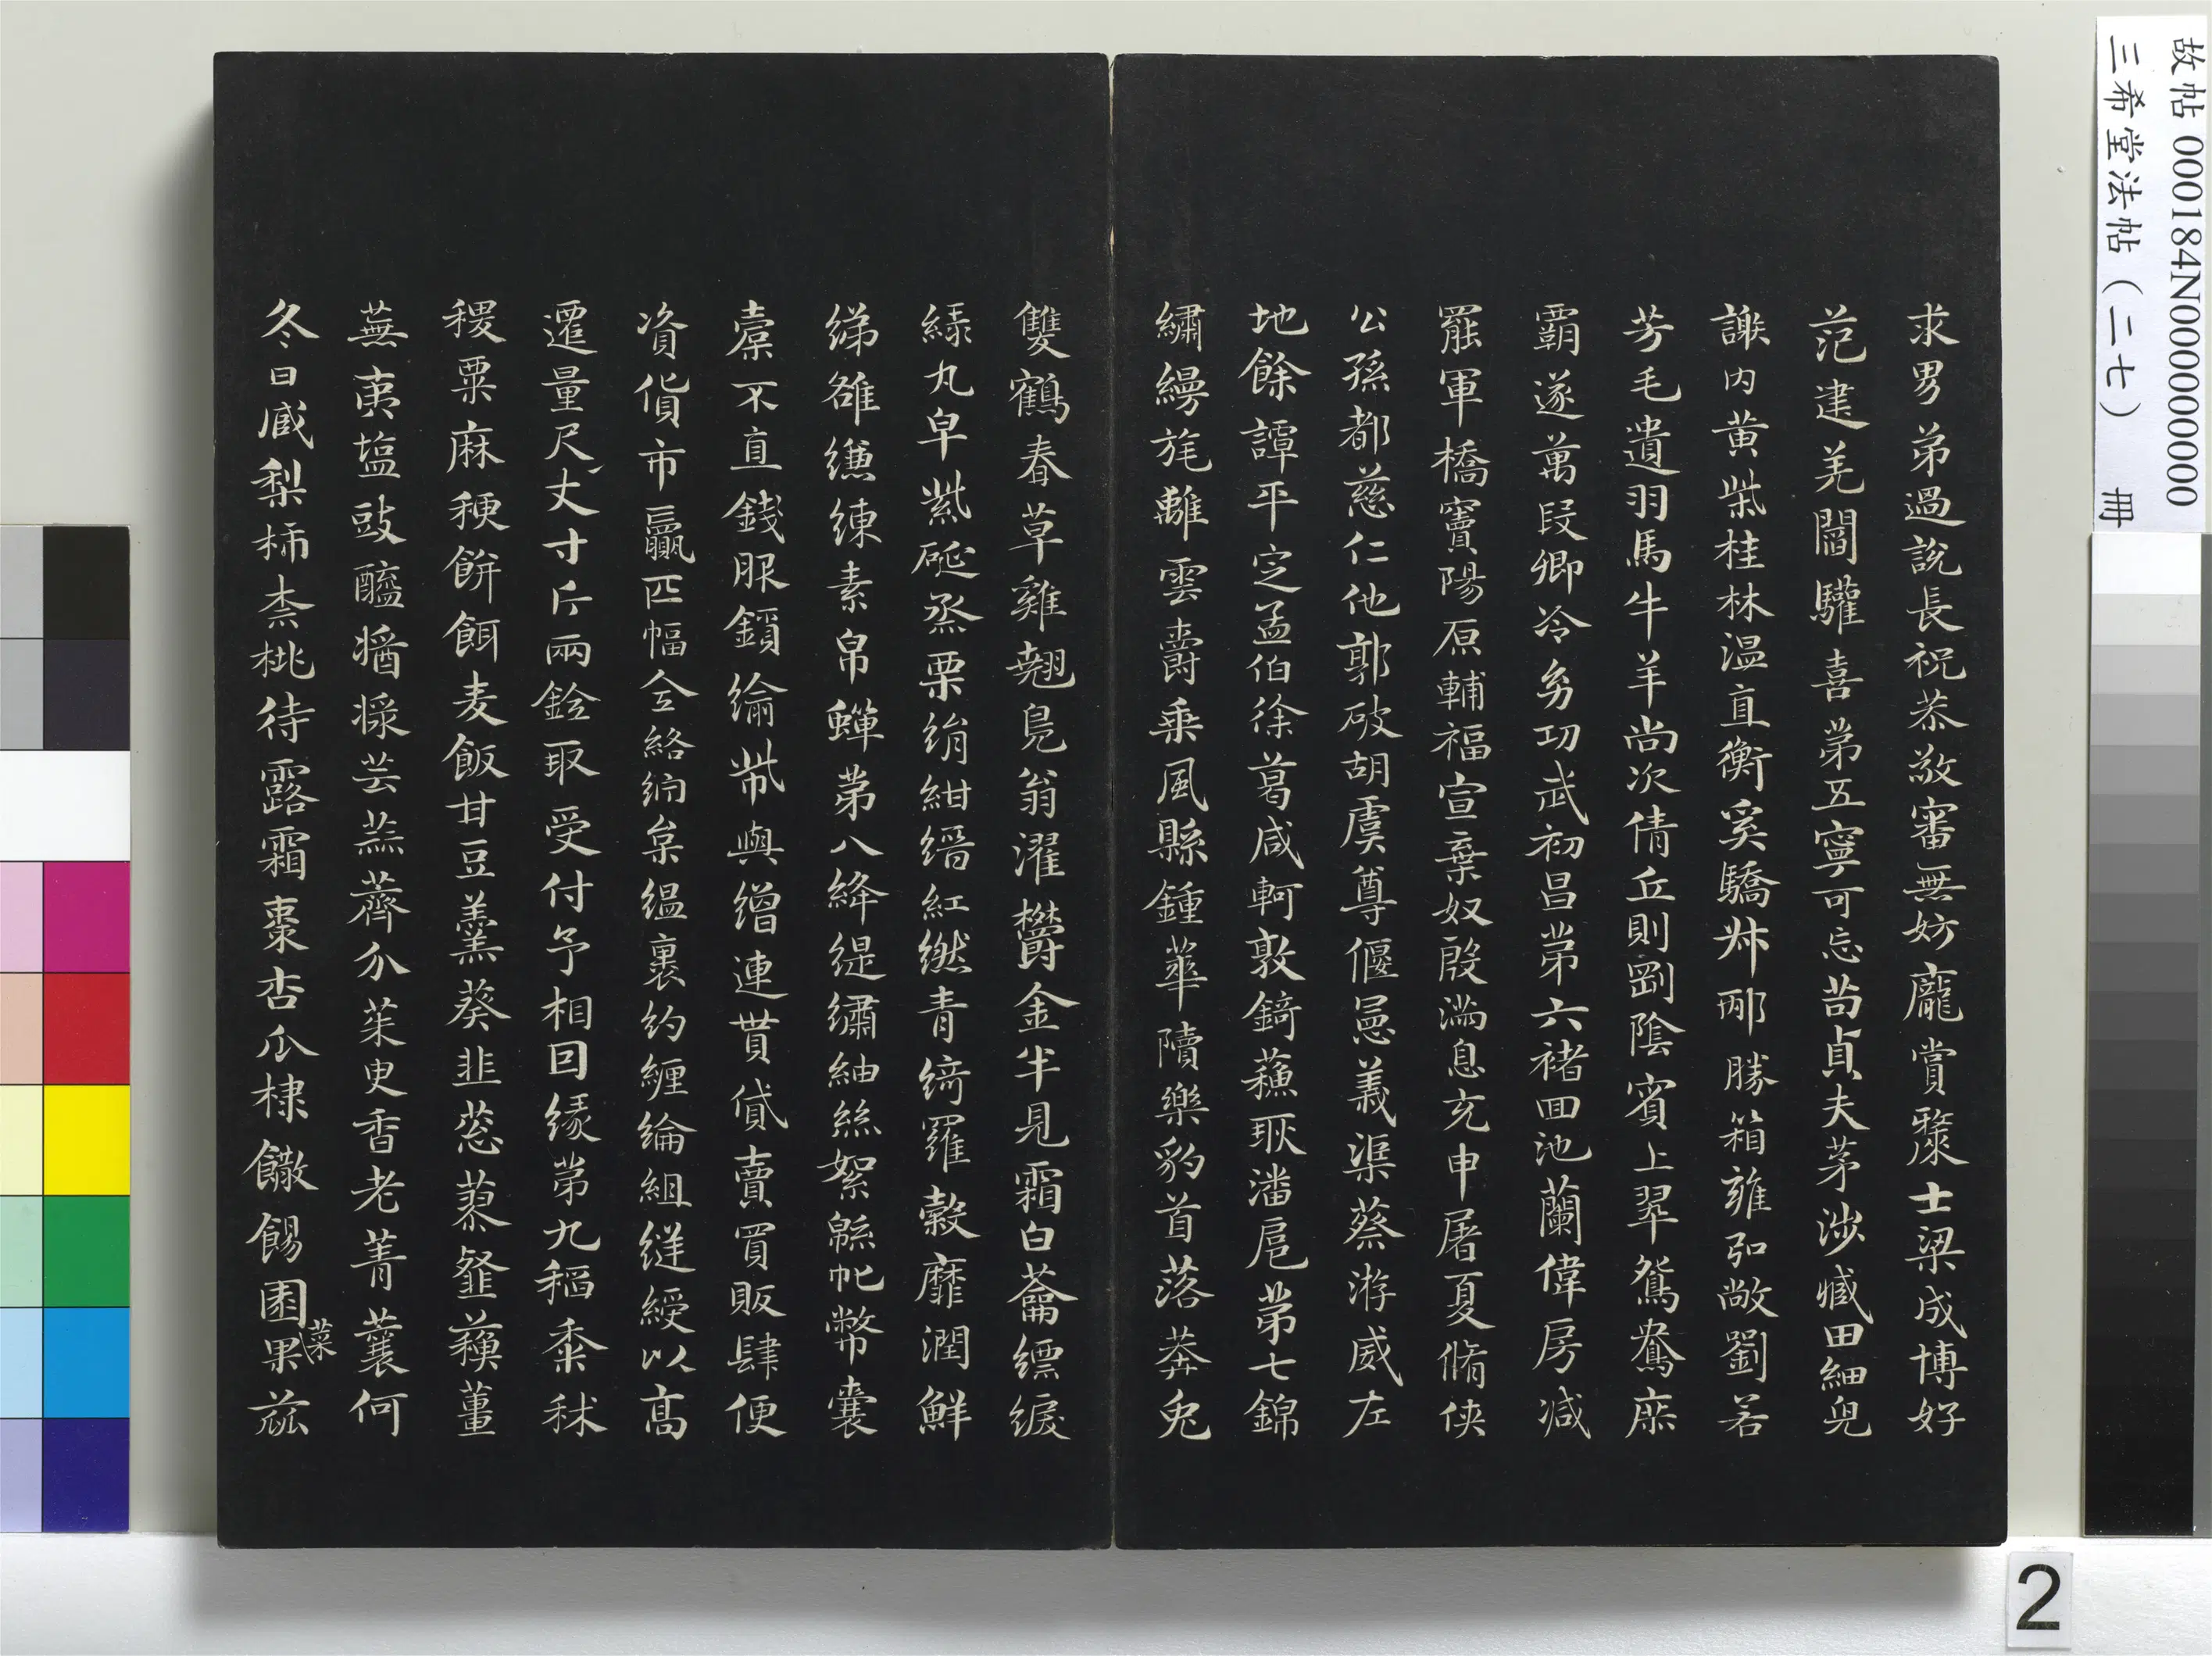 故帖 000184N000000000
三希堂法帖（二七） 冊
求男弟過說長祝恭敬審無妨龐賞䊍士梁成博好
范建羌閻驩喜第五寧可忘苟貞夫茅涉臧田細兒
謝內黃柴桂林溫直衡奚驕叔邴勝箱雍弘敞劉若
芳毛遺羽馬牛羊尚次倩丘則劉陰賓上翠鴛鴦庶
霸遂萬段卿泠幼功武初昌第六褚回池蘭偉房減
罷軍橋竇陽原輔福宣棄奴殷滿息充申屠夏脩俠
公孫都慈仁他郭破胡虞尊偃憲義渠蔡游威左
地餘譚平定孟伯徐葛咸軻敦錡蘇耿潘扈第七錦
繡縵旄離雲爵乘風縣鍾華隤樂豹首落莽兔
雙鶴春草雞翹鳧翁濯鬱金半見霜白蘥縹綟
綠丸皁紫硟烝栗絹紺縉紅繎青綺羅縠靡潤鮮
綈雒縑練素帛蟬第八絳緹繡紬絲絮緜帊幣囊
橐不直錢服鎖綸帋與繒連貰貸賣買販肆便
資貨市贏匹幅全絡綌枲縕裹約纏綸組縫綬以高
遷量尺丈寸斤兩銓取受付予相因緣第九稻黍秫
稷粟麻稉餅餌麦飯甘豆羹葵韭葱蓼䪥蘓薑
蕪荑塩豉醯酱漿芸蒜薺介茱萸香老菁蘘何
冬日臧梨柿柰桃待露霜棗杏瓜棣饊餳園菜果蓏
2